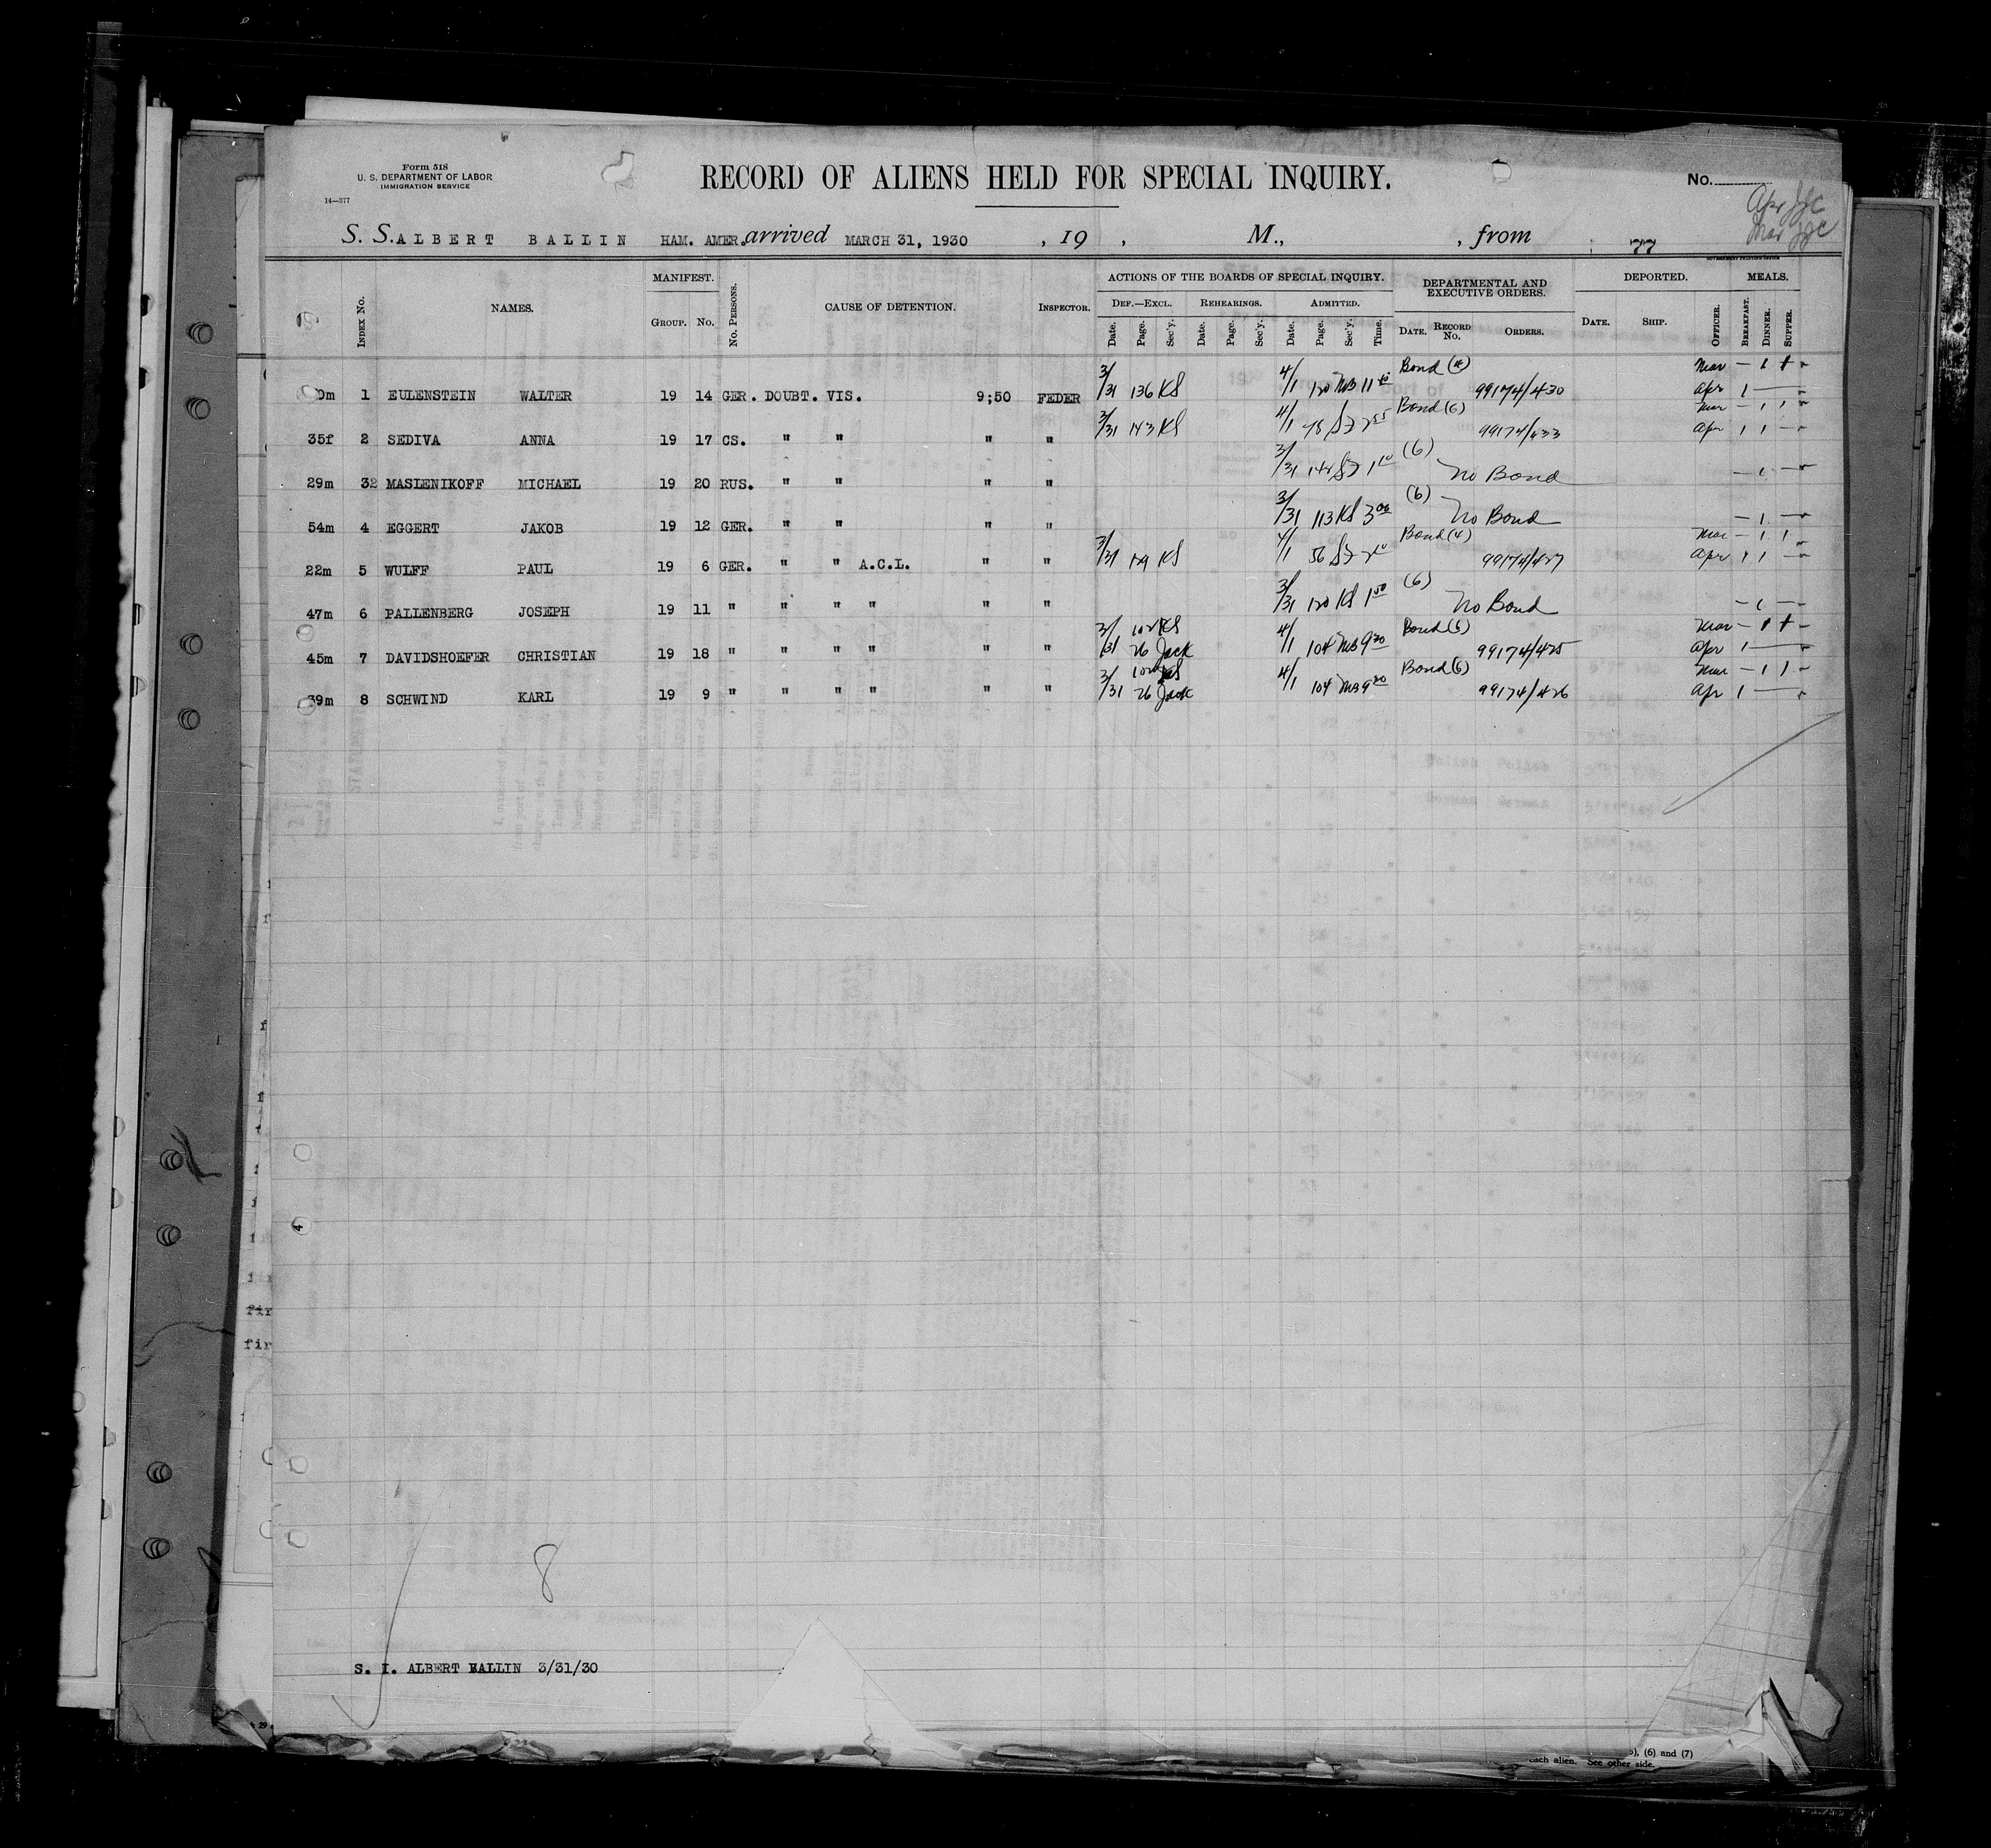 Form 518
U. S. DEPARTMENT OF LABOR
IMMIGRATION SERVICE
14—377
RECORD OF ALIENS HELD FOR SPECIAL INQUIRY.
No.
S. S. ALBERT BALLIN HAM. AMER. arrived MARCH 31, 1930 , 19 , M., , from 77
GOVERNMENT PRINTING OFFICE
INDEX No. NAMES. MANIFEST. GROUP. No. No. PERSONS. CAUSE OF DETENTION. INSPECTOR. ACTIONS OF THE BOARDS OF SPECIAL INQUIRY. DEPARTMENTAL AND EXECUTIVE ORDERS. DEPORTED. MEALS.
DEF.—EXCL. REHEARINGS. ADMITTED.
Date. Page. Sec'y. Date. Page. Sec'y. Date. Page. Sec'y. Time. DATE. RECORD No. ORDERS. DATE. SHIP. OFFICER. BREAKFAST. DINNER. SUPPER.
0m 1 EULENSTEIN WALTER 19 14 GER. DOUBT. VIS. 9;50 FEDER 3/31 136 KS 4/1 120 MB 11 Bond 99174/430 Mar – 1 + Apr 1
35f 2 SEDIVA ANNA 19 17 CS. " " " " 3/31 143 KS 4/1 78 2 55 Bond (6) 99174/433 Mar – 1 1 Apr 1 1 –
29m 32 MASLENIKOFF MICHAEL 19 20 RUS. " " " " 3/31 142 1 10 (6) No Bond – 1 –
54m 4 EGGERT JAKOB 19 12 GER. " " " " 3/31 113 KS 3 00 (6) No Bond – 1 –
22m 5 WULFF PAUL 19 6 GER. " " A.C.L. " " 3/31 129 KS 4/1 56 2 10 Bond (4) 99174/427 Mar – 1 1 Apr 1 1 –
47m 6 PALLENBERG JOSEPH 19 11 " " " " " " 3/31 120 KS 1 50 (6) No Bond – 1 –
45m 7 DAVIDSHOEFER CHRISTIAN 19 18 " " " " " " 3/31 102 KS 26 Jack 4/1 104 MB 9 20 Bond (6) 99174/425 Mar – 1 + – Apr 1
39m 8 SCHWIND KARL 19 9 " " " " " " 3/31 102 KS 26 Jack 4/1 104 MB 9 20 Bond (6) 99174/426 Mar – 1 1 – Apr 1
4
fir
fir
8
S. I. ALBERT BALLIN 3/31/30
29
, (6) and (7)
each alien. See other side.